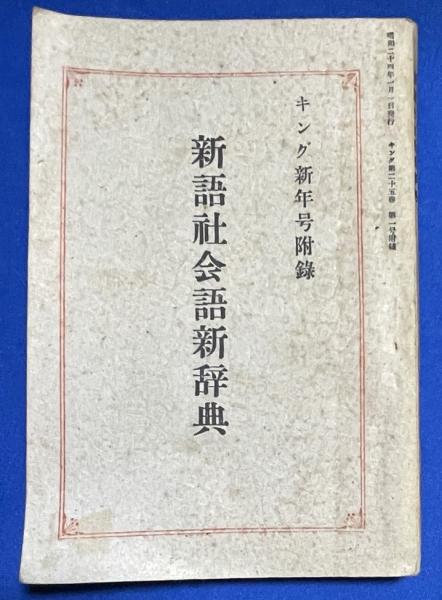 昭和二十四年一月一日発行 キング第二十五巻 第一号附録
キング新年号附錄
新語社会語新辞典